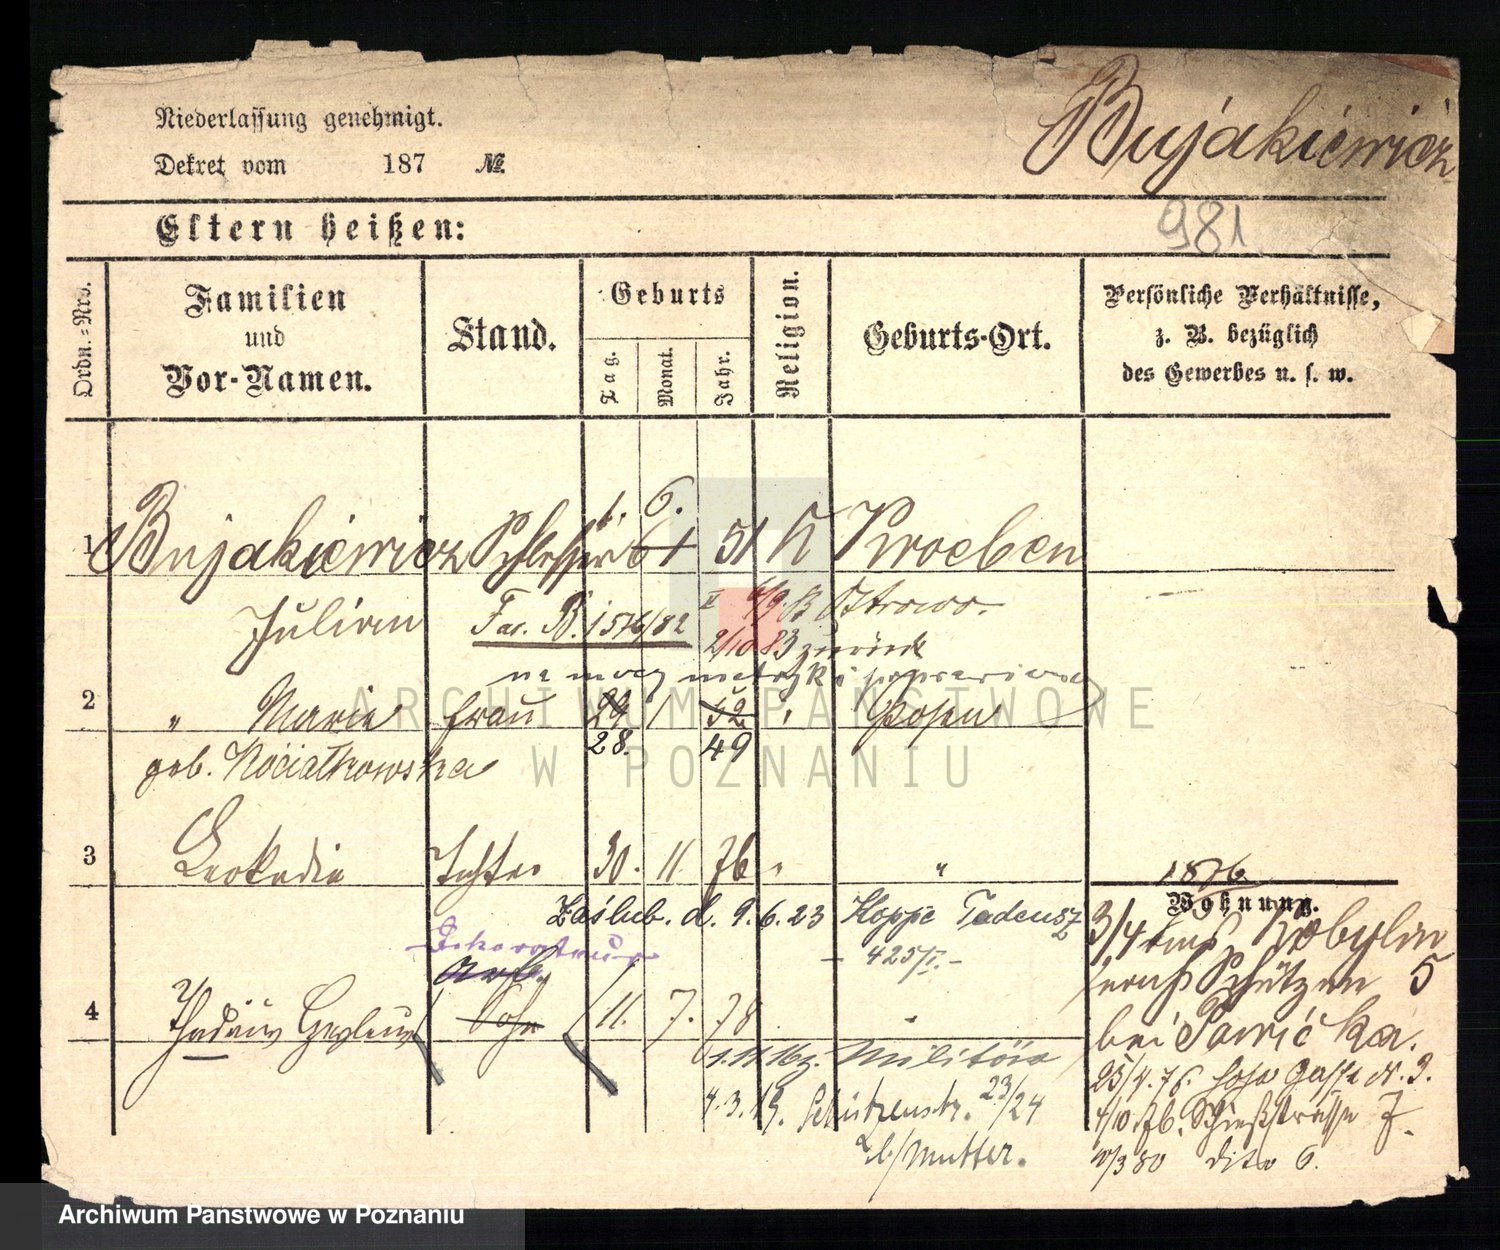 Niederlassung genehmigt.
Bujakiewicz
Dekret vom 187 №
Eltern heißen:
981
Ordn.-Nro.
Familien und Vor-Namen.
Stand.
Geburts
Tag.
Monat.
Jahr.
Religion.
Geburts-Ort.
Persönliche Verhältnisse,
z. B. bezüglich
des Gewerbes u. s. w.
1. 6.
1 Bujakiewicz Schlosser 61 51 K Kroeben
Julian Fas. B. 1576/82 II 6/9. 83 Ostrowo.
2/10 83 zurück
na mocy metryki poprawiono
2 " Marie Frau 29 1 52 " Posen
28. 49
geb. Kociałkowska
3 Leokadia Tochter 30. 11. 76 " "
Zaślub. d. 9. 6. 23 Hoppe Tadeusz
- 425/I. -
Dekorateur
4 Thadäus Sohn 11. 7. 78 "
1.11.16 z. Militär
4.3.19. Schützenstr. 23/24
b/Mutter.
1876
Wohnung.
3/4 Kobylin
Schützen 5
bei
25/4. 76. hohe Gasse N. 3.
4/10. 76. Schießstrasse 7.
3 80 dito 6.
ARCHIWUM PAŃSTWOWE
W POZNANIU
Archiwum Państwowe w Poznaniu